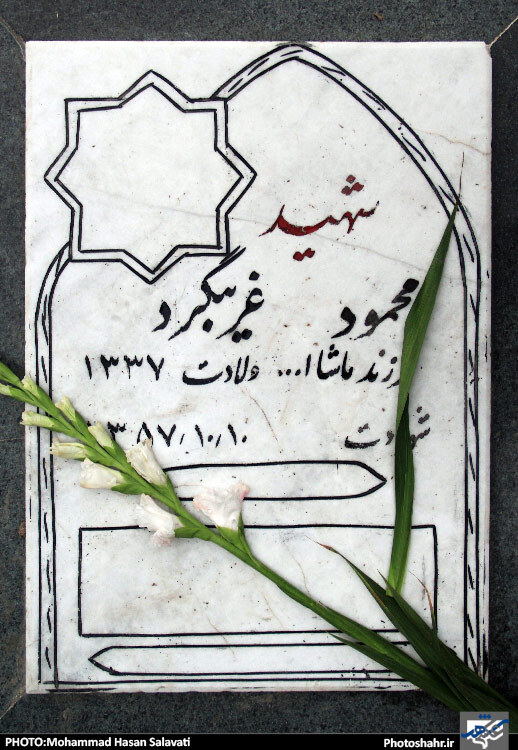 شهید
محمود غریبگرد
رزند ماشاا... ولادت ۱۳۳۷
شهادت ۳۸۷/۱۰/۱۰
PHOTO:Mohammad Hasan Salavati
Photoshahr.ir